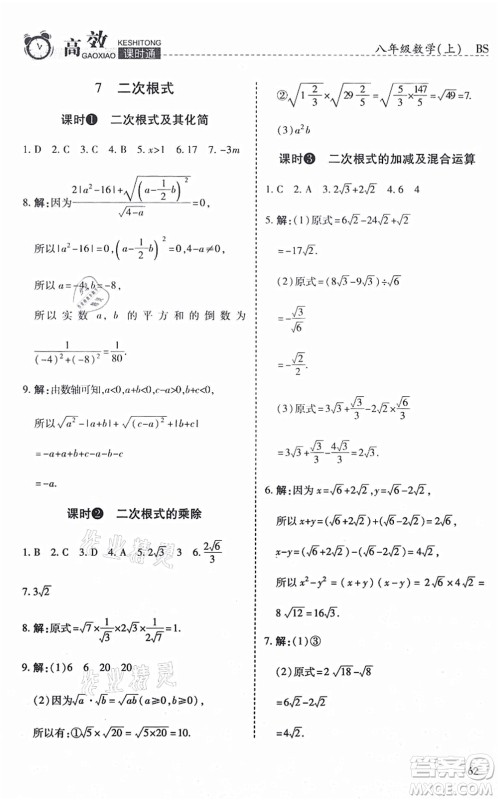 高效
KESHITONG
GAOXIAO 课时通
八年级数学(上) BS
7 二次根式
课时❶ 二次根式及其化简
1. D 2. C 3. B 4. C 5. x>1 6. 17 7. -3m
8. 解:因为(2|a²-16|+√(a-½b)²)/√(4-a)=0,
所以|a²-16|+(a-½b)²=0,4-a≠0,
所以a=-4,b=-8,
所以实数 a, b 的平方和的倒数为
1/((-4)²+(-8)²)=1/80.
9. 解:由数轴可知,a<0,a+b<0,c-a>0,c<0,
所以√a²-|a+b|+√(c-a)²+|b+c|
=-a+a+b+c-a-b-c
=-a.
课时❷ 二次根式的乘除
1. B 2. C 3. D 4. A 5. 2√3 3 6. 2√6/3
7. 3√2
8. 解:原式=√7×1/√3×√7=7√3/3.
9. 解:(1)6 6 20 20
(2)因为√a·√b=√ab(a≥0,b≥0),
所以:①√5×√125=√(5×125)=25;
②√(1⅔)×√(29⅖)=√(5/3×147/5)=√49=7.
(3)a²b
课时❸ 二次根式的加减及混合运算
1. C 2. A 3. 2√3 4. 6 4
5. 解:(1)原式=6√2-24√2+√2
=-17√2.
(2)原式=(8√3-9√3)÷√6
=-√3/√6
=-√2/2.
(3)原式=2√3+√3/3-2√2×√6/3
=2√3+√3/3-4√3/3=√3.
6. 解:因为x=√6+√2,y=√6-√2,
所以x+y=(√6+√2)+(√6-√2)=2√6,
x-y=(√6+√2)-(√6-√2)=2√2,
所以x²-y²=(x+y)(x-y)=2√6×2√2=
8√12=16√3.
7. 解:(1)③
(2)原式=2√18-√8
=6√2-2√2
=4√2.
作业精灵
作业精灵
答案圈
52